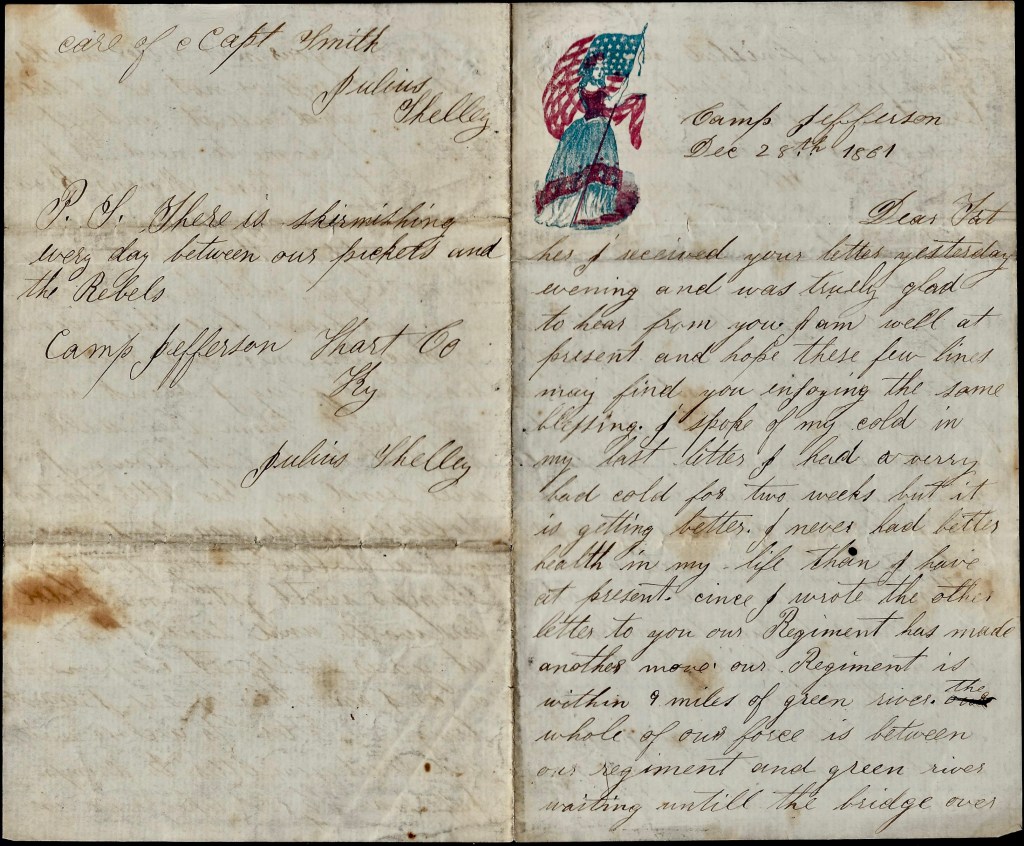 care of Capt Smith
Julius
Shelley.
P. S. There is skirmishing
every day between our pickets and
the Rebels
Camp Jefferson Hart Co
Ky
Julius Shelley
Camp Jefferson
Dec 28th 1861
Dear Fat
her I received your letter yesterday
evening and was truely glad
to hear from you. I am well at
present and hope these few lines
may find you enjoying the same
blessing. I spoke of my cold in
my last letter I had a verry
bad cold for two weeks but it
is getting better. I never had better
health in my life than I have
at present. cince I wrote the other
letter to you our Regiment has made
another move. our Regiment is
within 9 miles of green river. the
whole of our force is between
our regiment and green river
waiting untill the bridge over